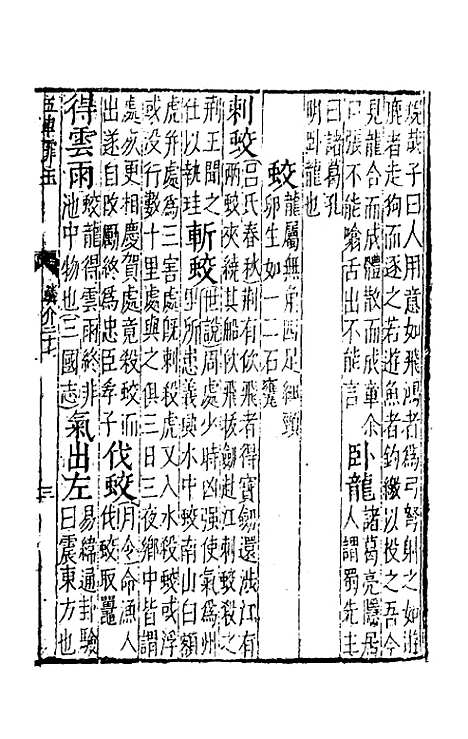 哉子曰人用意如飛鴻者爲弓弩射之如遊
鹿者走狗而逐之若遊魚者鈎繳以投之吾今
見龍合而成體散而成章余
口張不能嗋舌出不能言
臥龍
諸葛亮隱居
人謂蜀先主
曰諸葛孔
明卧龍也
蛟
龍屬無角四足細頸
卵生如一二石甕
刺蛟
呂氏春秋荆有佽飛者得寶劒還涉江有
兩蛟夾繞其船佽飛拔劒赴江刺蛟殺之
荆王聞之
仕以執珪
斬蛟
世說周處少時凶强使氣爲州
里所忠義興水中蛟南山白額
虎并處爲三害處旣刺殺虎又入水殺蛟或浮
或没行數十里處與之俱三日三夜鄉中皆謂
處死更相慶賀處竟殺蛟而
出遂自改勵終爲忠臣孝子
伐蛟
月令命漁人
伐蛟取鼉
得雲雨
蛟龍得雲雨終非
池中物也三國志
氣出左
易緯通卦驗
曰震東方也
五車霏玉
鱗介二十
三